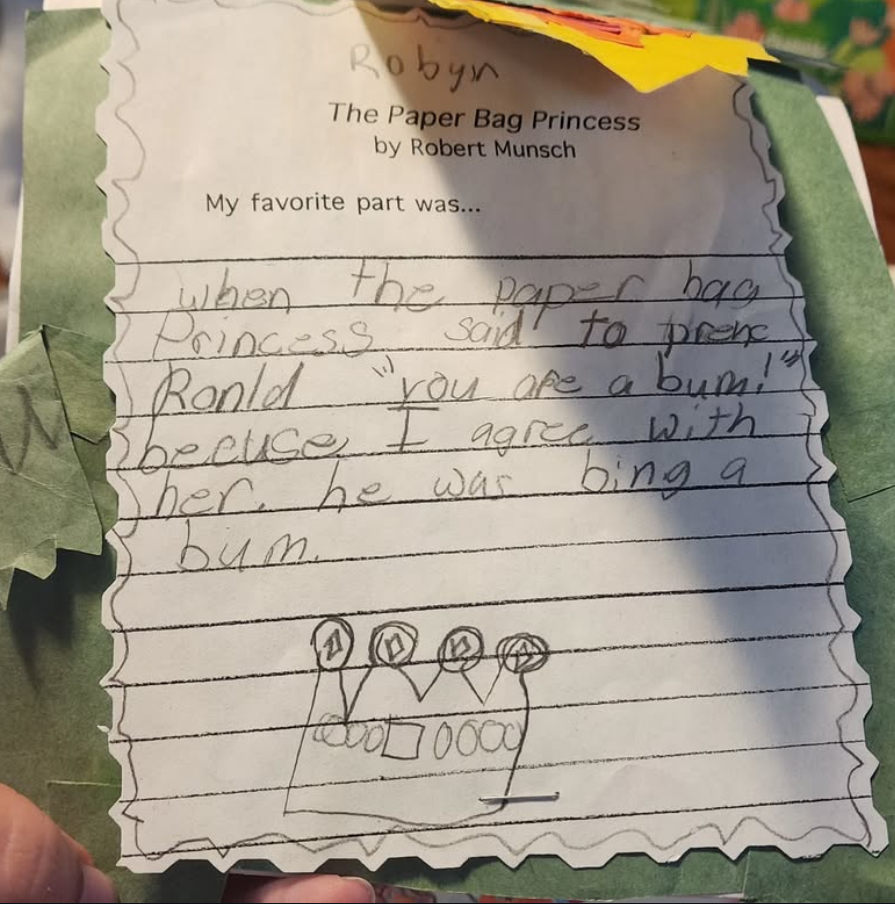 Robyn
The Paper Bag Princess
by Robert Munsch
My favorite part was...
when the paper bag
Princess said to prenc
Ronld "you are a bum!"
becuse I agree with
her. he was bing a
bum.